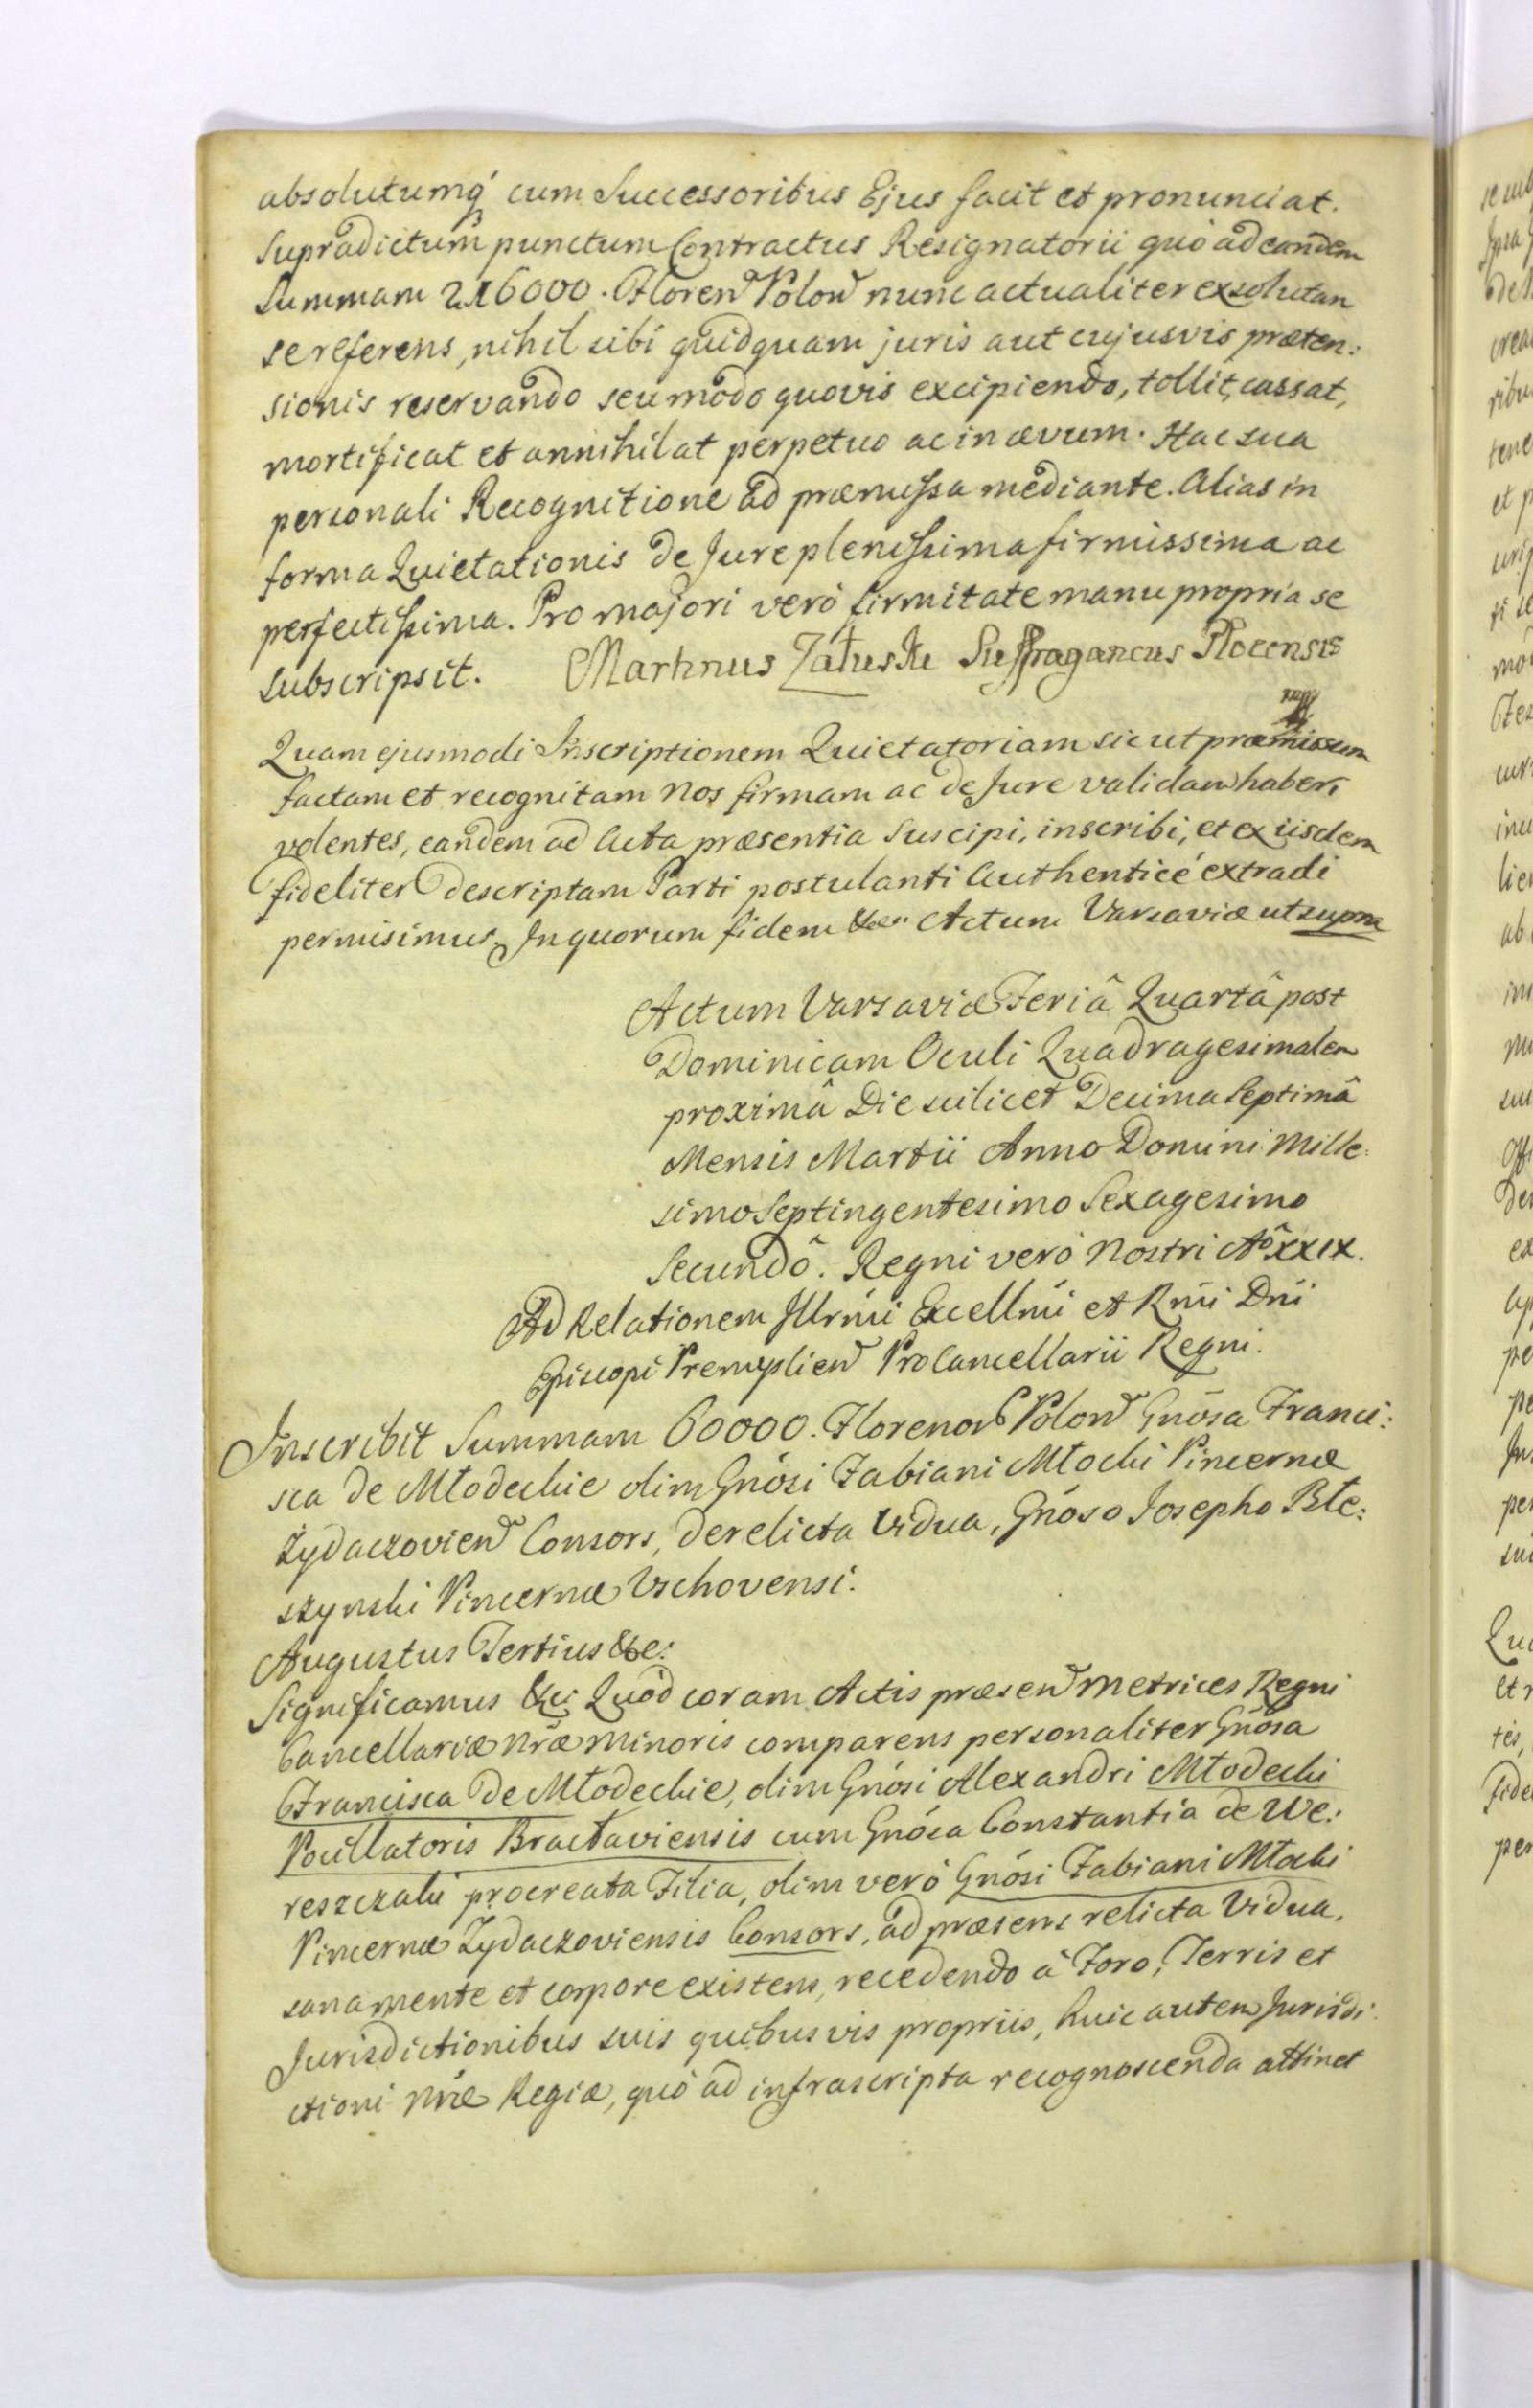 absolutumq́ cum Successoribus Ejus facit et pronunciat.
Supradictum punctum Contractus Resignatorii quò ad eandem
Summam 216000. Floren Polon nunc actualiter exsolutam
se referens, nihil sibi quidquam juris aut cujusvis præten:
sionis reservando seu modo quovis excipiendo, tollit, cassat,
mortificat et annihilat perpetuo ac in ævum. Hac sua
personali Recognitione ad præmissa mediante. Alias in
forma Quietationis de Jure plenissima firmissima ac
perfectissima. Pro majori verò firmitate manu propria se
subscripsit. Martinus Załuski Suffraganeus Plocensis
Quam ejusmodi Inscriptionem Quietatoriam sic ut præmissum
factam et recognitam Nos firmam ac de Jure validam haberi
volentes, eandem ad Acta præsentia Suscipi, inscribi, et ex iisdem
fideliter descriptam Parti postulanti Authenticè extradi
permisimus. In quorum fidem &cc Actum Varsaviæ ut supra
Actum Varsaviæ Feriâ Quartâ post
Dominicam Oculi Quadragesimalem
proximâ Die scilicet Decima Septimâ
Mensis Martii Anno Domini Mille:
simo Septingentesimo Sexagesimo
Secundô. Regni verò Nostri Aô XXIX.
Ad Relationem Illrmi Excellmi et Rmi Dni
Episcopi Premyslien ProCancellarii Regni.
Inscribit Summam 60000. Florenor Polon Gnosa Franci:
sca de Młodeckie olim Gnosi Fabiani Młocki Pincernæ
Żydaczovien Consors, derelicta Vidua, Gnoso Josepho Ble:
szynski Pincernæ Vschovensi.
Augustus Tertius &c:
Significamus &c: Quòd coram Actis præsen Metrices Regni
Cancellariæ Nræ Minoris comparens personaliter Gnosa
Francisca de Młodeckie, olim Gnosi Alexandri Młodecki
Pocillatoris Bracłaviensis cum Gnosa Constantia de We:
reszczaki procreata Filia, olim verò Gnosi Fabiani Młocki
Pincernæ Zydaczoviensis Consors, ad præsens relicta Vidua,
sana mente et corpore existens, recedendo à Foro, Terris et
Jurisdictionibus suis quibusvis propriis, huic autem Jurisdi:
ctioni Nræ Regiæ, quò ad infrascripta recognoscenda attinet